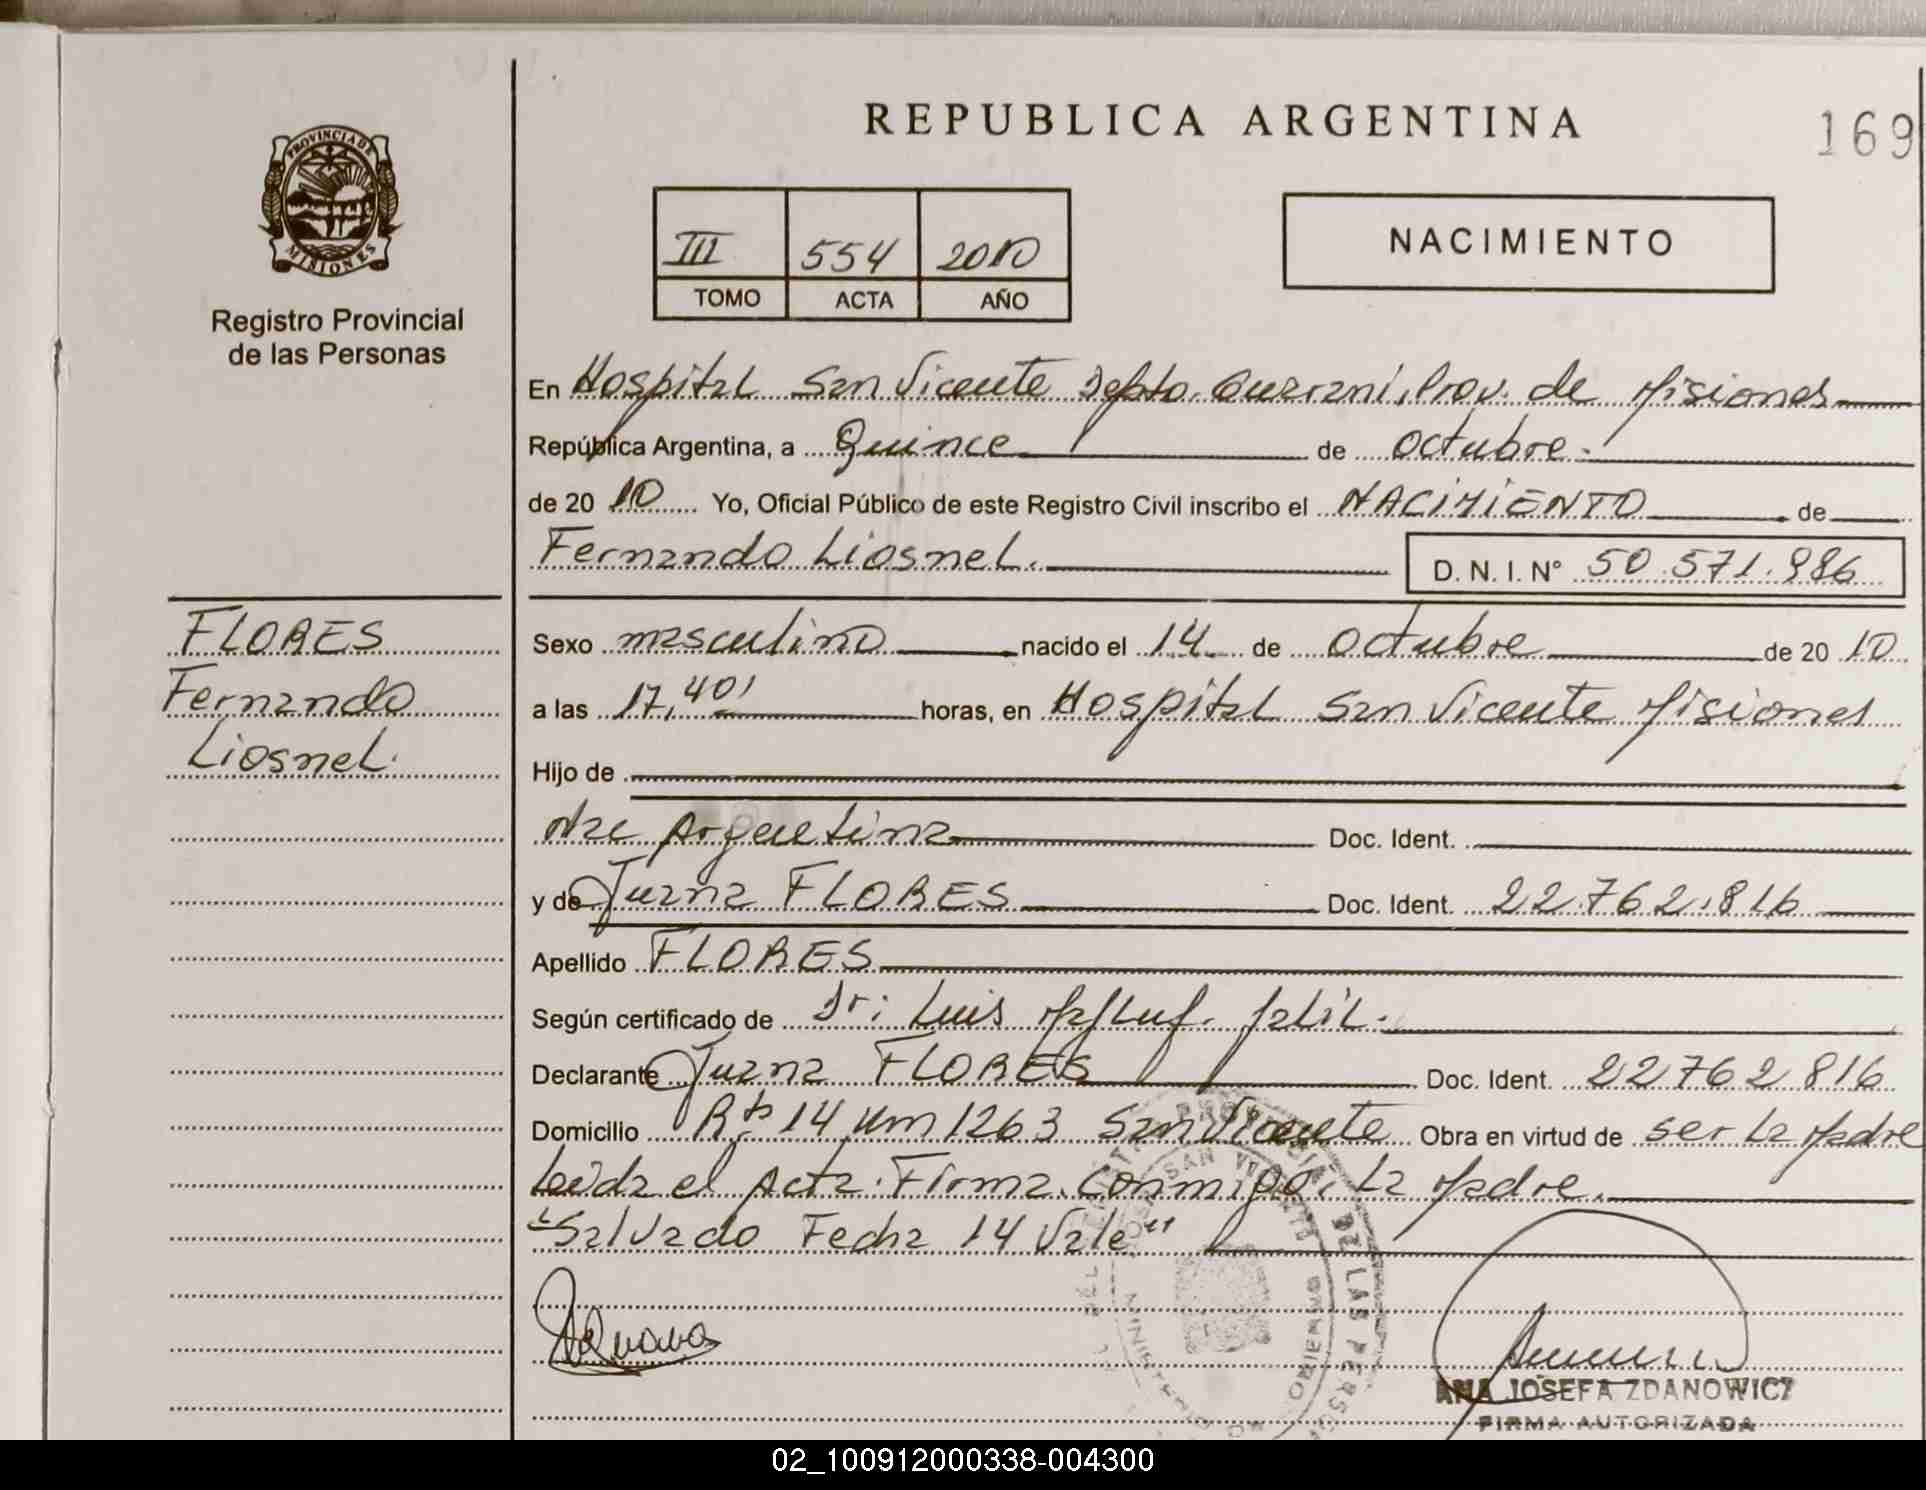 REPUBLICA ARGENTINA
169
PROVINCIA DE
MISIONES
Registro Provincial
de las Personas
III 554 2010
TOMO ACTA AÑO
NACIMIENTO
En Hospital San Vicente Depto. Guarani, Prov. de Misiones
República Argentina, a Quince de octubre.
de 2010 Yo, Oficial Público de este Registro Civil inscribo el NACIMIENTO de
Fernando Liosnel.
D. N. I. N° 50.571.986
FLORES
Fernando
Liosnel.
Sexo masculino nacido el 14 de octubre de 2010
a las 17,40' horas, en Hospital San Vicente Misiones
Hijo de
Nac Argentina Doc. Ident.
y de Juana FLORES Doc. Ident. 22.762.816
Apellido FLORES
Según certificado de Dr: Luis Jalil.
Declarante Juana FLORES Doc. Ident. 22762816
Domicilio Rta 14 Km 1263 San Vicente Obra en virtud de ser la Madre
Leida el Acta. Firma conmigo. La Madre.
"Salvado Fecha 14 Vale"
ANA JOSEFA ZDANOWICZ
FIRMA AUTORIZADA
02_100912000338-004300